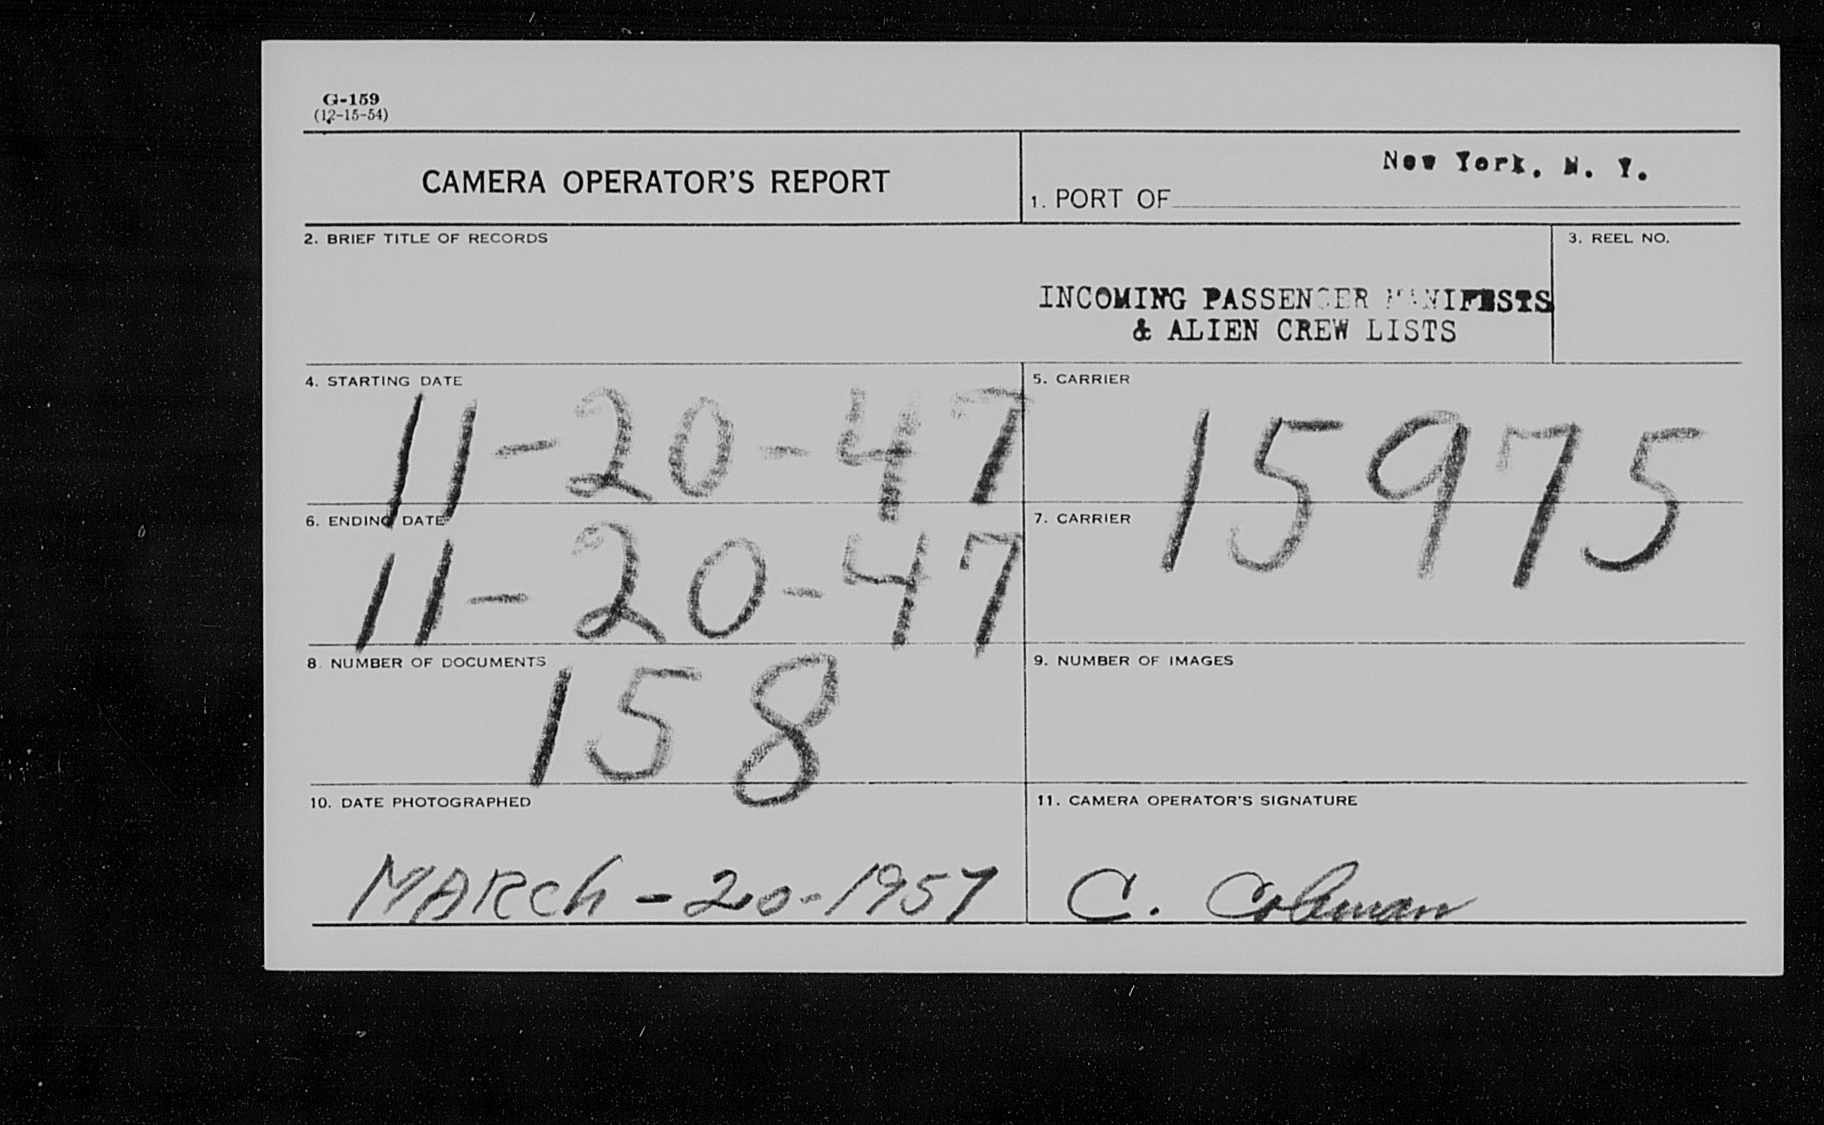 G-159
(12-15-54)
CAMERA OPERATOR'S REPORT
New York, N. Y.
1. PORT OF
2. BRIEF TITLE OF RECORDS
3. REEL NO.
INCOMING PASSENGER MANIFESTS
& ALIEN CREW LISTS
4. STARTING DATE
11-20-47
5. CARRIER
15975
6. ENDING DATE
11-20-47
7. CARRIER
8. NUMBER OF DOCUMENTS
158
9. NUMBER OF IMAGES
10. DATE PHOTOGRAPHED
MARCh-20-1957
11. CAMERA OPERATOR'S SIGNATURE
C. Coleman